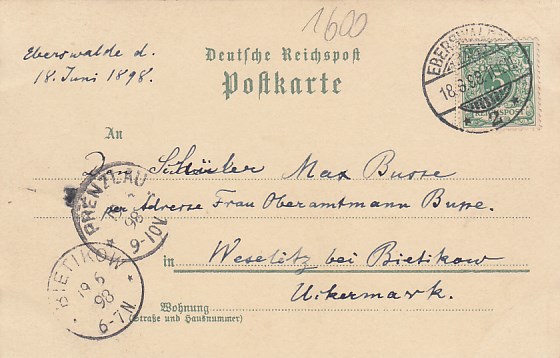 1600
Eberswalde d.
18. Juni 1898.
Deutsche Reichspost
Postkarte
EBERSWALDE
18.6.98
* 2
5
REICHSPOST
An
Schüler Max Busse
per Adresse Frau Oberamtmann Busse.
in Weselitz bei Bietikow
Uckermark.
Wohnung
(Straße und Hausnummer)
PRENZLAU
98
9-10V.
BIETIKOW
19 6
98
6-7N.